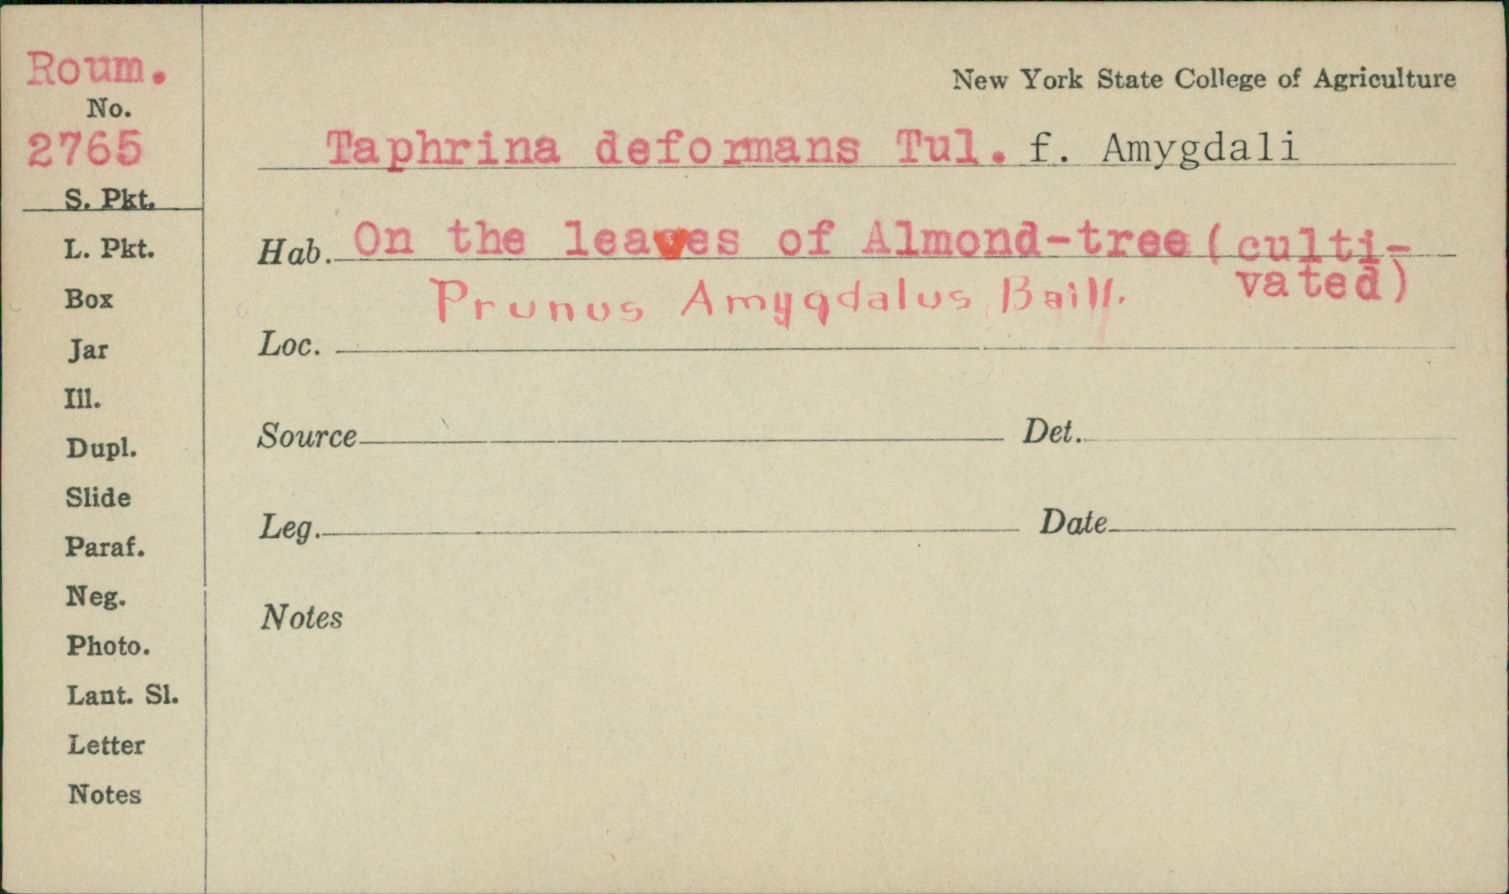 Roum.
No.
2765
S. Pkt.
L. Pkt.
Box
Jar
Ill.
Dupl.
Slide
Paraf.
Neg.
Photo.
Lant. Sl.
Letter
Notes
New York State College of Agriculture
Taphrina deformans Tul. f. Amygdali
Hab. On the leaves of Almond-tree (culti-
vated)
Prunus Amygdalus Baill.
Loc.
Source Det.
Leg. Date
Notes